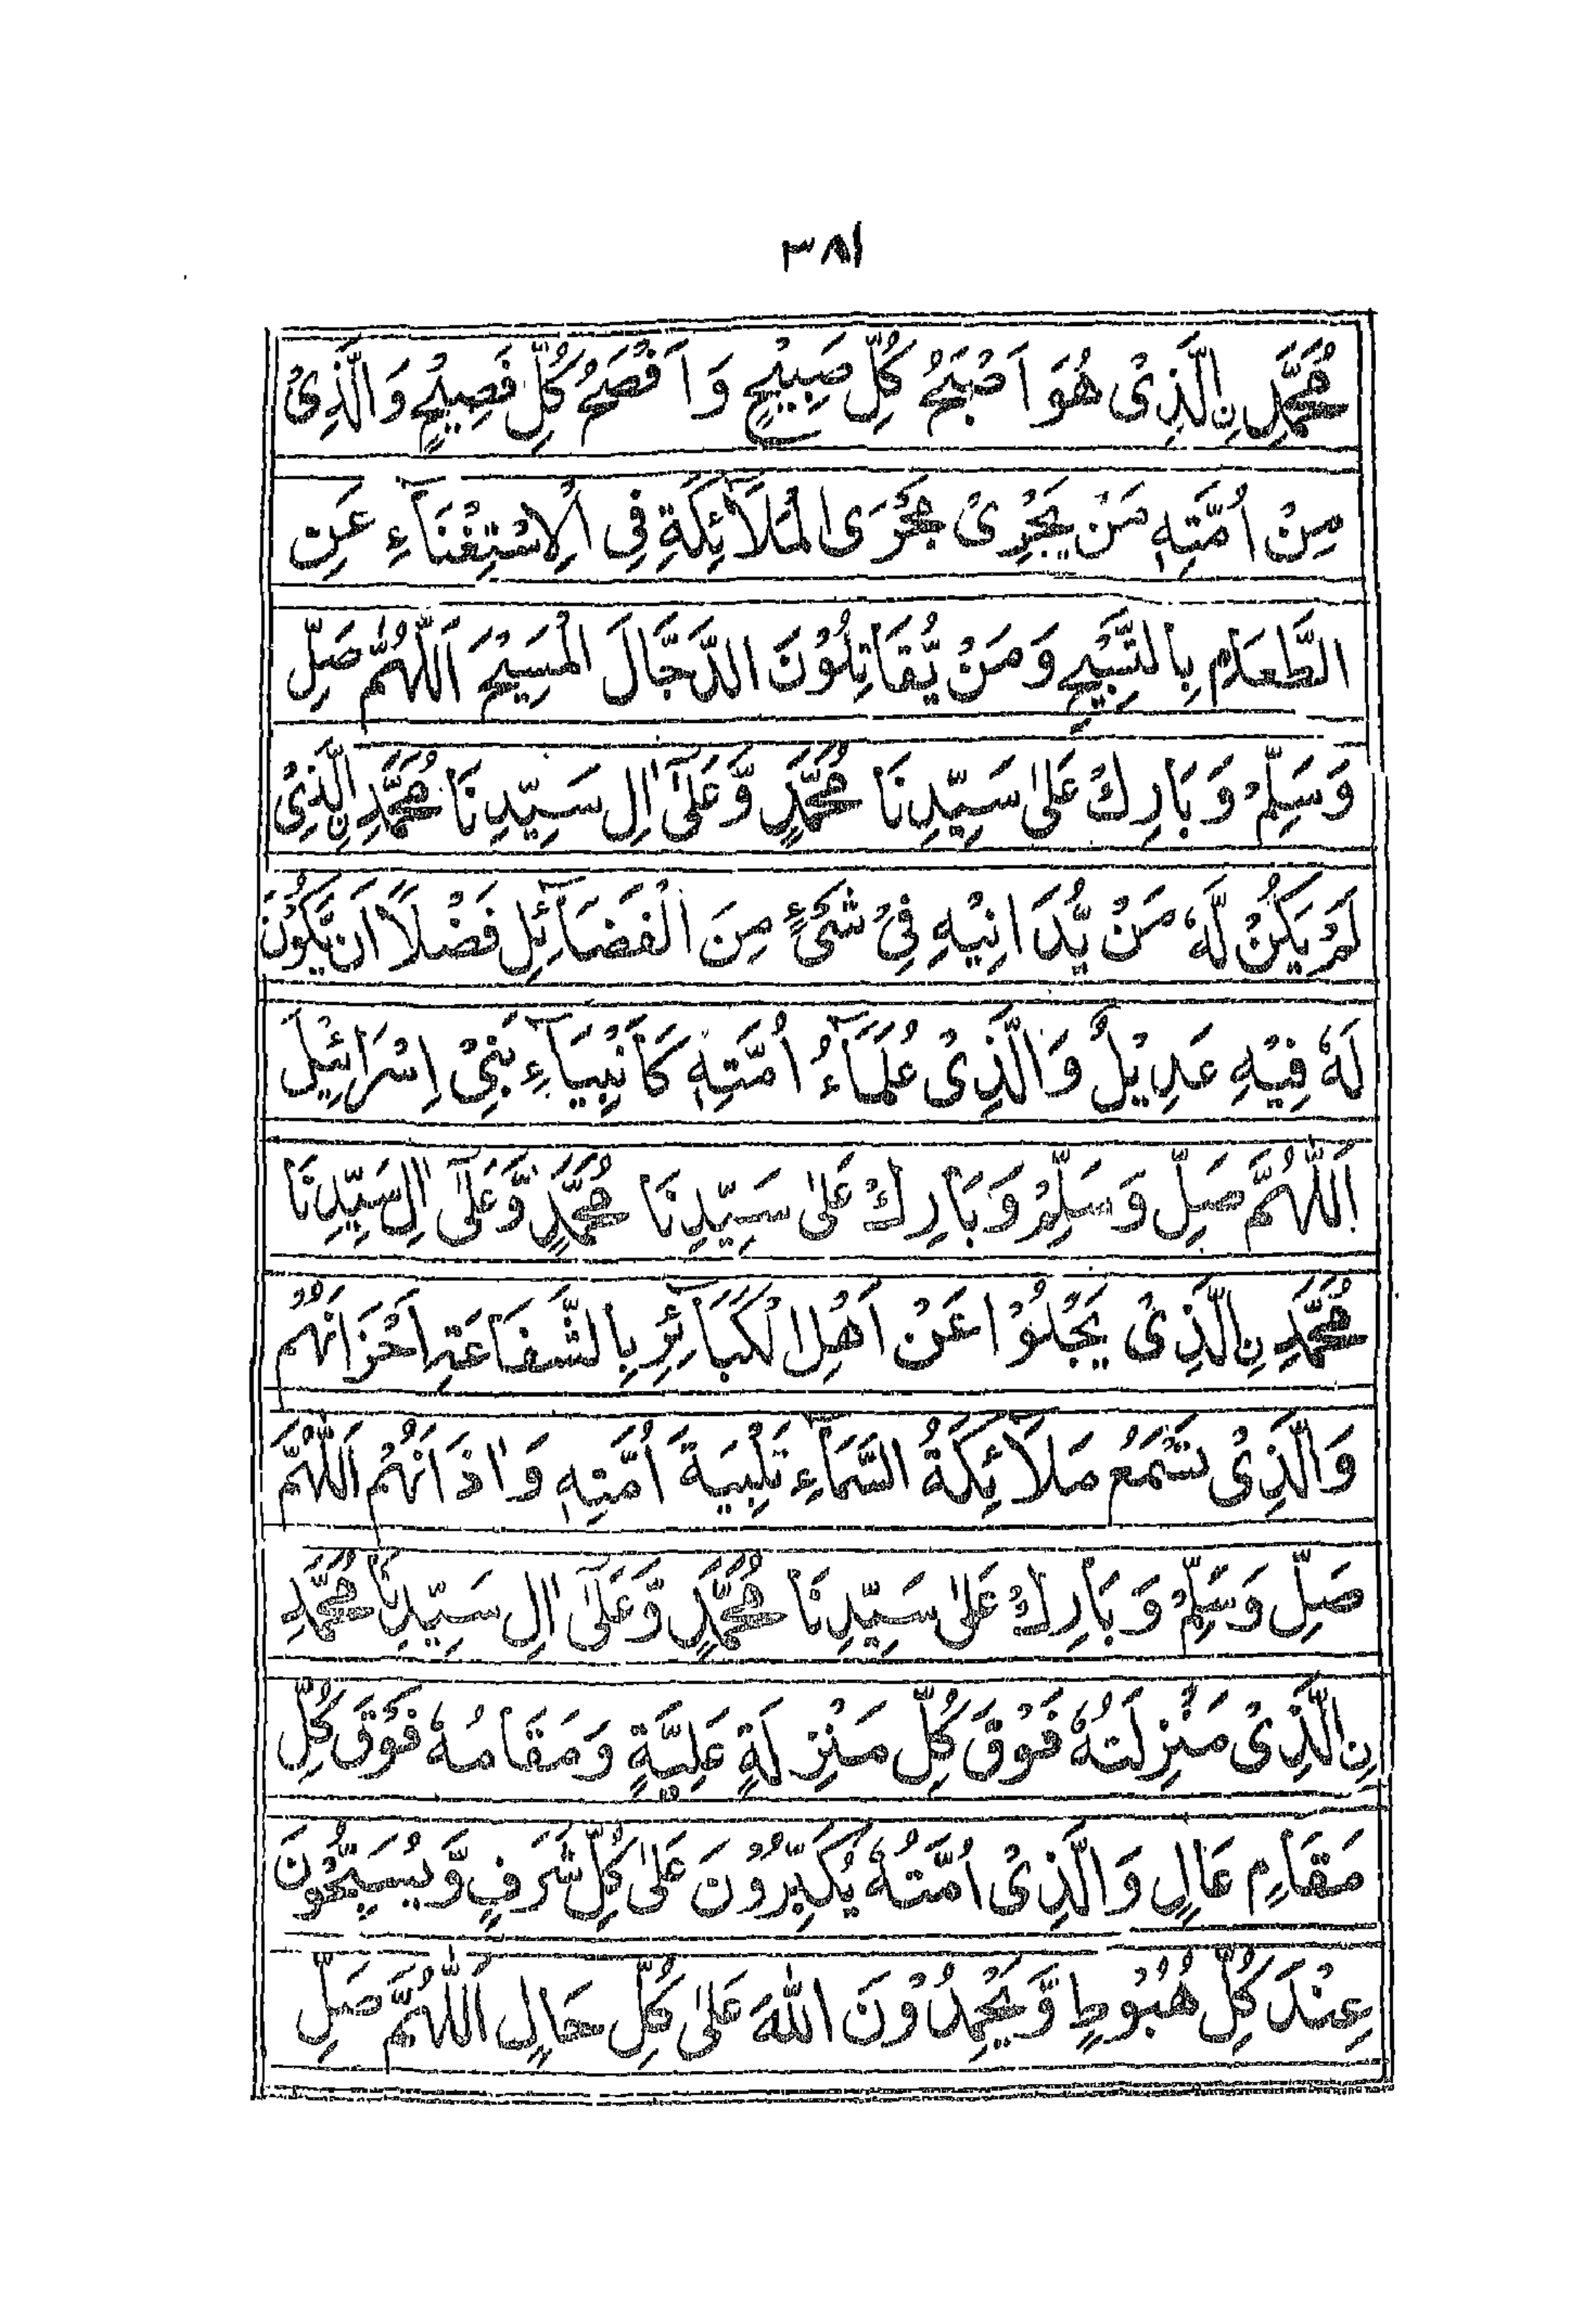 ٣٨١
مُحَمَّدِ نِالَّذِیْ هُوَ اَصْبَحُ كُلِّ صَبِیْحٍ وَ اَفْصَحُ كُلِّ فَصِیْحٍ وَالَّذِیْ
مِنْ اُمَّتِهٖ مَنْ یَجْرِیْ مَجْرَی الْمَلَآئِكَةِ فِی الْاِسْتِغْنَآءِ عَنِ
الطَّعَامِ بِالتَّسْبِیْحِ وَمَنْ یُّقَاتِلُوْنَ الدَّجَّالَ الْمَسِیْحَ اَللّٰهُمَّ صَلِّ
وَسَلِّمْ وَبَارِكْ عَلٰی سَیِّدِنَا مُحَمَّدٍ وَّعَلٰٓی اٰلِ سَیِّدِنَا مُحَمَّدِ نِالَّذِیْ
لَمْ یَكُنْ لَّهٗ مَنْ یُّدَانِیْهِ فِیْ شَیْءٍ مِنَ الْفَضَآئِلِ فَضْلًا اَنْ یَّكُوْنَ
لَهٗ فِیْهِ عَدِیْلٌ وَالَّذِیْ عُلَمَآءُ اُمَّتِهٖ كَاَنْبِیَآءِ بَنِیْ اِسْرَائِیْلَ
اَللّٰهُمَّ صَلِّ وَسَلِّمْ وَبَارِكْ عَلٰی سَیِّدِنَا مُحَمَّدٍ وَّعَلٰٓی اٰلِ سَیِّدِنَا
مُحَمَّدِ نِالَّذِیْ یَجْلُوْا عَنْ اَهْلِ الْكَبَآئِرِ بِالشَّفَاعَةِ اَحْزَانَهُمْ
وَالَّذِیْ تَسْمَعُ مَلَآئِكَةُ السَّمَآءِ تَلْبِیَةَ اُمَّتِهٖ وَاٰذَانَهُمْ اَللّٰهُمَّ
صَلِّ وَسَلِّمْ وَبَارِكْ عَلٰی سَیِّدِنَا مُحَمَّدٍ وَّعَلٰٓی اٰلِ سَیِّدِنَا مُحَمَّدِ
نِالَّذِیْ مَنْزِلَتُهٗ فَوْقَ كُلِّ مَنْزِلَةٍ عَلِیَّةٍ وَمَقَامُهٗ فَوْقَ كُلِّ
مَقَامٍ عَالٍ وَالَّذِیْ اُمَّتُهٗ یُكَبِّرُوْنَ عَلٰی كُلِّ شَرَفٍ وَّیُسَبِّحُوْنَ
عِنْدَ كُلِّ هُبُوْطٍ وَّیَحْمِدُوْنَ اللّٰهَ عَلٰی كُلِّ حَالٍ اَللّٰهُمَّ صَلِّ